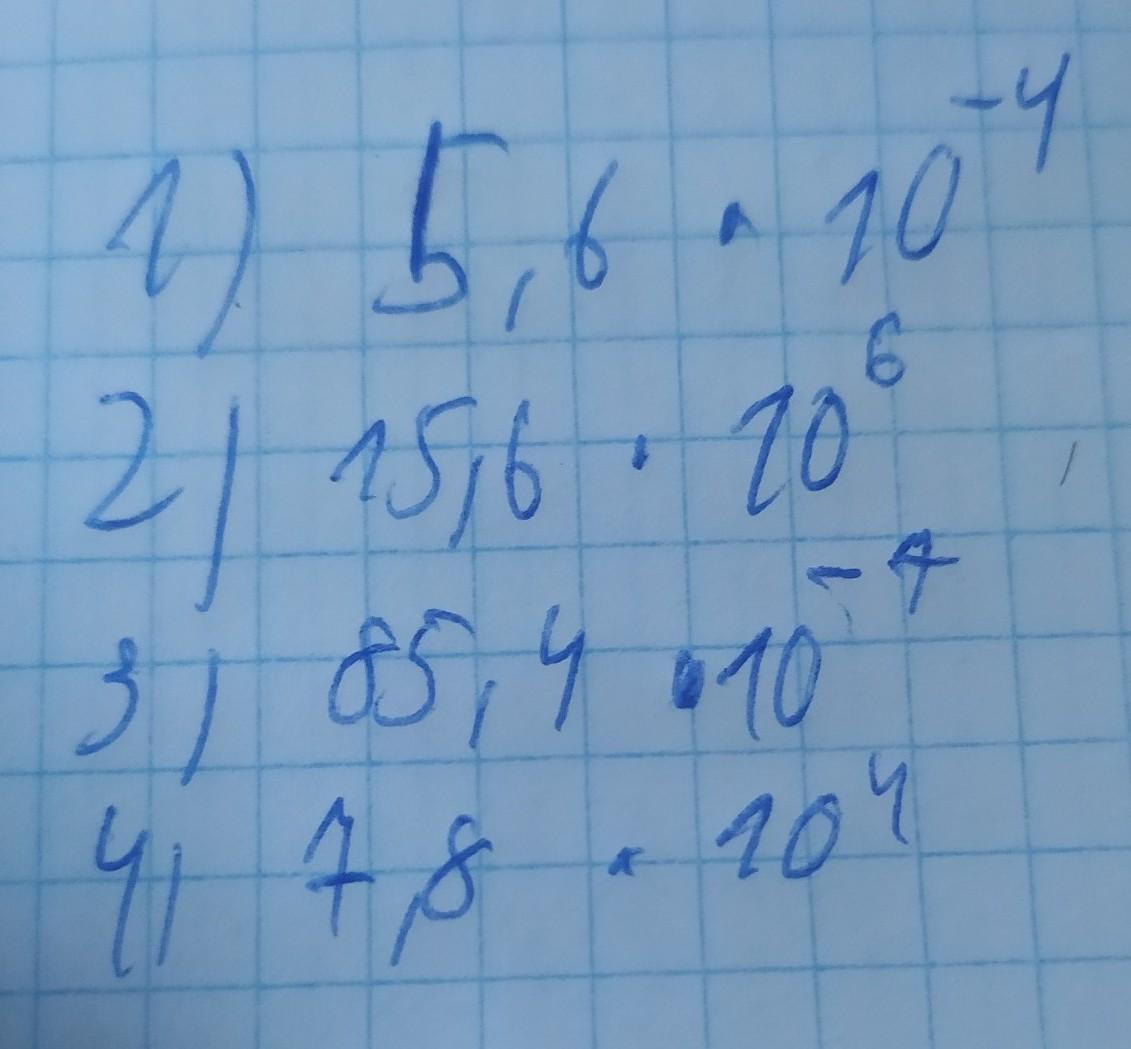 1) 5,6 · 10⁻⁴
2) 15,6 · 10⁶
3) 85,4 · 10⁻⁷
4) 7,8 · 10⁴